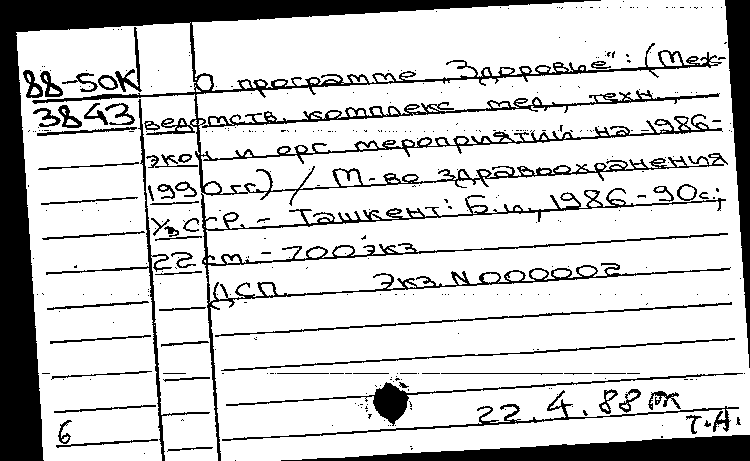 88-50К О программе „Здоровье": (Меж-
3843 ведомств. комплекс мед., техн.,
экон и орг мероприятий на 1986-
1990 гг.) / М-во здравоохранения
УзССР. - Ташкент: Б.и., 1986. - 90с.;
22 см. - 700 экз
ДСП. Экз. N 000002
22.4.88
6 Т.А.